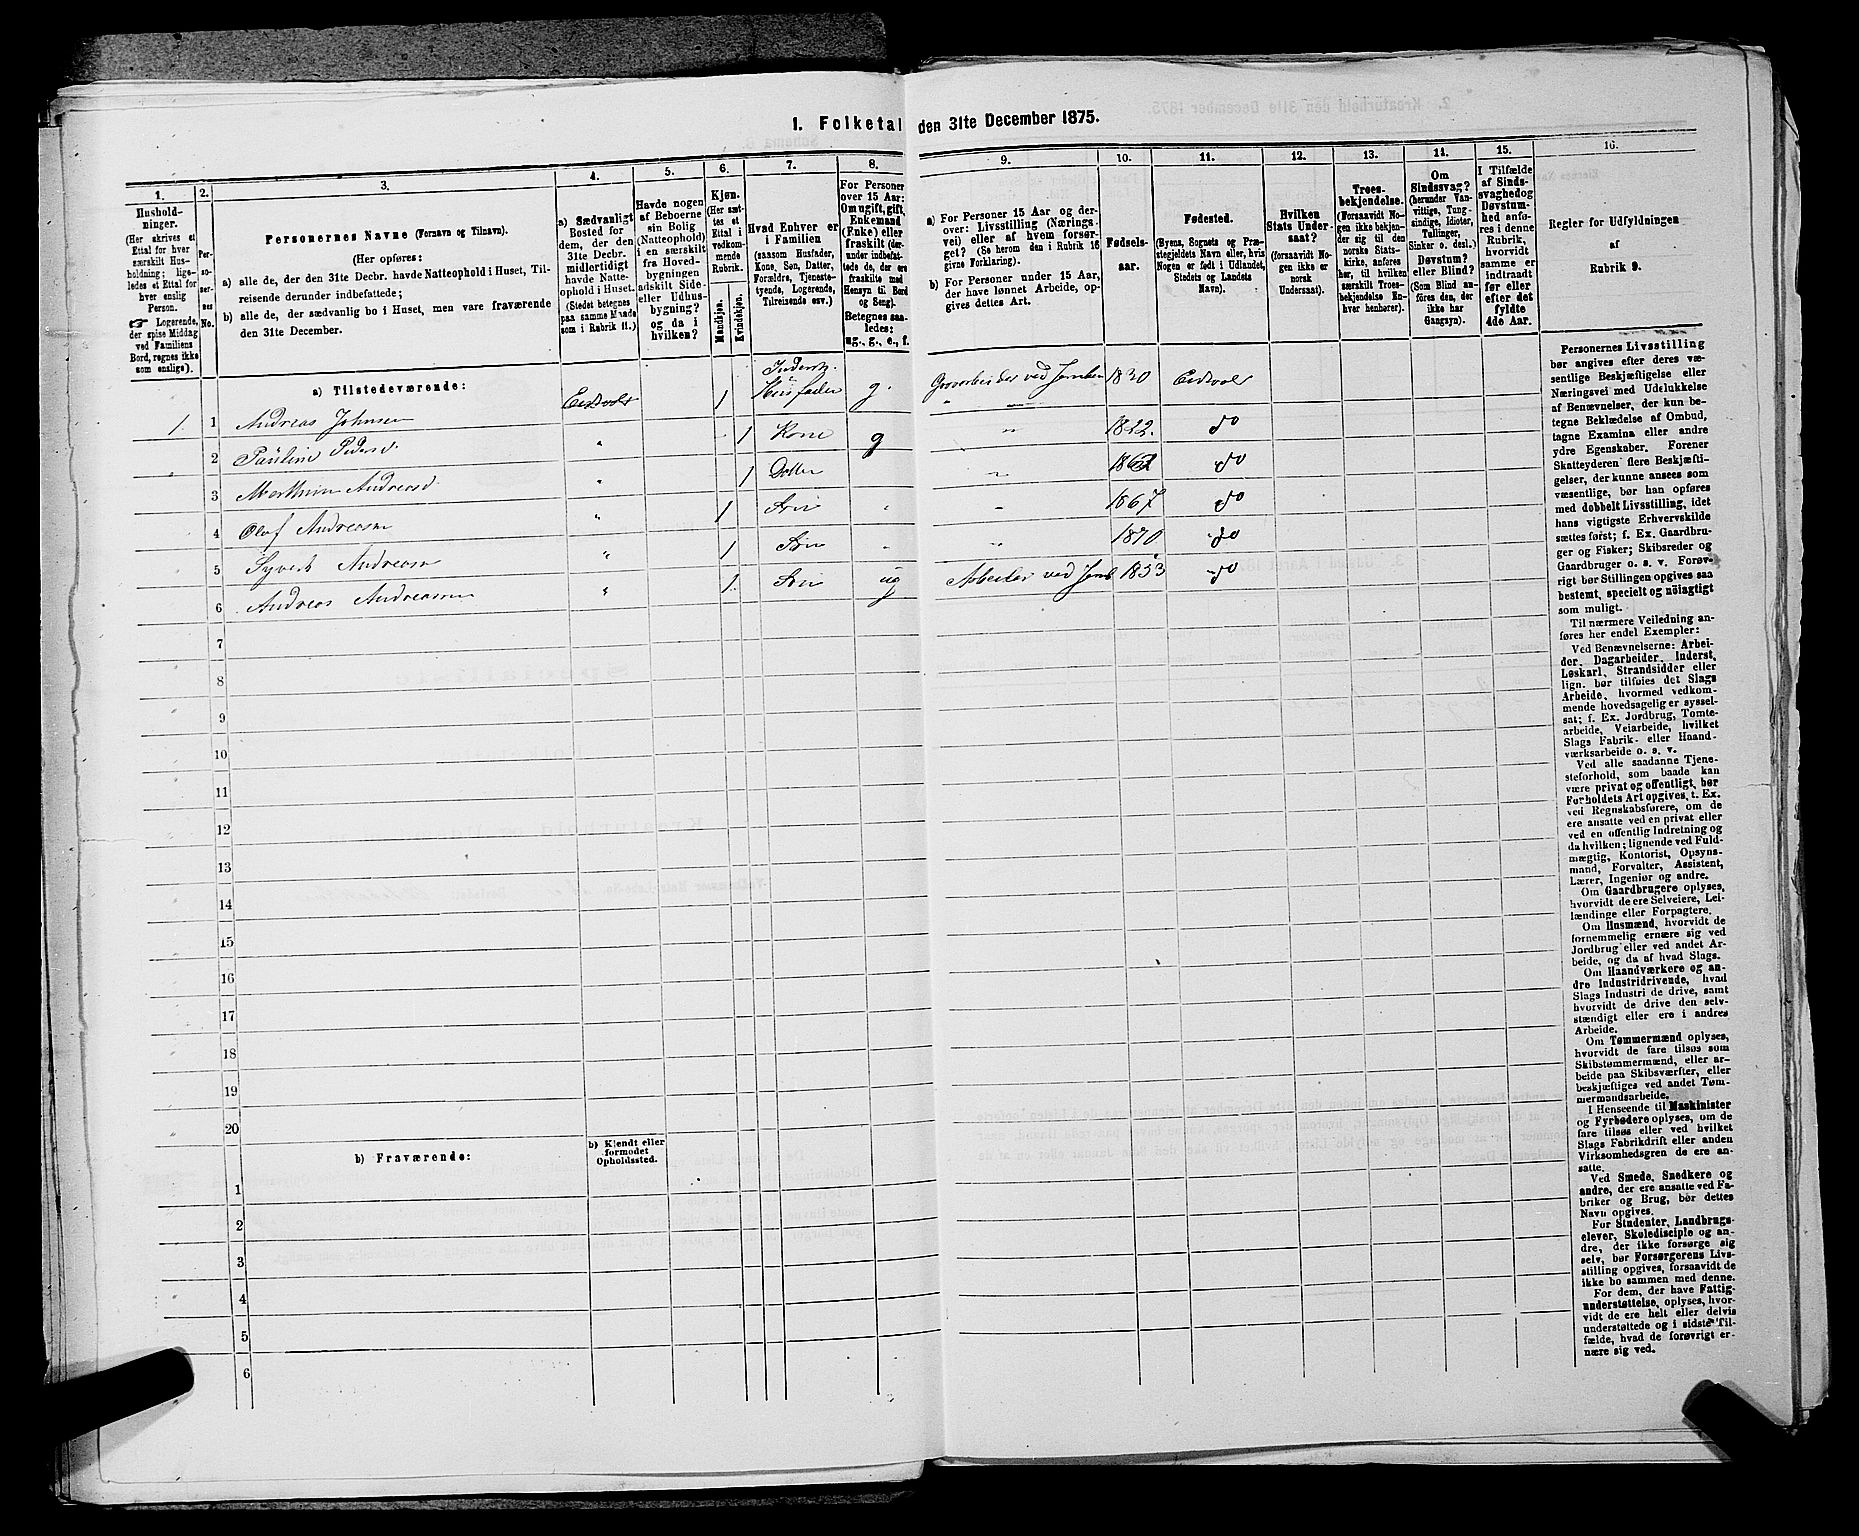 1. Folketal den 31te December 1875.
1. 2. 3. 4. 5. 6. 7. 8. 9. 10. 11. 12. 13. 14. 15. 16.
Hushold-
ninger.
(Her skrives et
Ettal for hver
særskilt Hus-
holdning; lige-
ledes et Ettal for
hver enslig
Person.
☞ Logerende,
der spise Middag
ved Familiens
Bord, regnes ikke
som enslige).
Per-
so-
ner-
nes
No.
Personernes Navne (Fornavn og Tilnavn).
(Her opføres:
a) alle de, der den 31te Decbr. havde Natteophold i Huset, Til-
reisende derunder indbefattede;
b) alle de, der sædvanlig bo i Huset, men vare fraværende
den 31te December.
a) Sædvanligt
Bosted for
dem, der den
31te Decbr.
midlertidigt
havde Natte-
ophold i Huset.
(Stedet betegnes
paa samme Maade
som i Rubrik 11.)
Havde nogen
af Beboerne
sin Bolig
(Natteophold)
i en særskilt
fra Hoved-
bygningen
adskilt Side-
eller Udhus-
bygning?
og da i
hvilken?
Kjøn.
(Her sæt-
tes et
Ettal i
vedkom-
mende
Rubrik.
Mandkjøn.
Kvindekjøn.
Hvad Enhver er
i Familien
(saasom Husfader,
Kone, Søn, Datter,
Forældre, Tjeneste-
tyende, Logerende,
Tilreisende osv.)
For Personer
over 15 Aar:
Om ugift, gift,
Enkemand
(Enke) eller
fraskilt (der-
under indbefat-
tede de, der ere
fraskilte med
Hensyn til Bord
og Seng).
Betegnes saa-
ledes:
ug., g., e., f.
a) For Personer 15 Aar og der-
over: Livsstilling (Nærings-
vei) eller af hvem forsør-
get? (Se herom den i Rubrik 16
givne Forklaring).
b) For Personer under 15 Aar,
der have lønnet Arbeide, op-
gives dettes Art.
Fødsels-
aar.
Fødested.
(Byens, Sognets og Præ-
stegjeldets Navn eller, hvis
Nogen er født i Udlandet,
Stedets og Landets
Navn).
Hvilken
Stats Under-
saat?
(forsaavidt No-
gen ikke er
norsk
Undersaat).
Troes-
bekjendelse.
(Forsaavidt No-
gen ikke bekjen-
der sig til den
norske Stats-
kirke, anføres
her, til hvilken
særskilt Troes-
bekjendelse En-
hver henhører).
Om
Sindssvag?
(herunder Van-
vittige, Tung-
sindige, Idioter,
Tullinger,
Sinker o. desl.)
Døvstum?
eller Blind?
(Som Blind an-
føres den, der
ikke har
Gangsyn).
I Tilfælde
af Sinds-
svaghed og
Døvstum-
hed anfø-
res i denne
Rubrik,
hvorvidt
samme er
indtraadt
før eller
efter det
fyldte
4de Aar.
Regler for Udfyldningen
af
Rubrik 9.
a) Tilstedeværende:
1 1 Andreas Johnsen Eidsvold 1 Inderst, Husfader g. Gravarbeider ved Jernban 1830 Eidsvold
2 Pauline Peders " 1 Kone g " 1822. do
3 Marthine Andreasd " 1 Datter " do
4 Olaf Andreasen " 1 Søn " " 1867 do
5 Syvert Andreasen " 1 Søn " " 1870 do
6 Andreas Andreasen " 1. Søn ug Arbeider ved Jernb 1853 do
7
8
9
10
11
12
13
14
15
16
17
18
19
20
b) Fraværende:
b) Kjendt eller
formodet
Opholdssted.
1
2
3
4
5
6
Personernes Livsstilling
bør angives efter deres væ-
sentlige Beskjæftigelse eller
Næringsvei med Udelukkelse
af Benævnelser, der kun be-
tegne Beklædelse af Ombud,
tagne Examina eller andre
ydre Egenskaber. Forener
Skatteyderen flere Beskjæfti-
gelser, der kunne ansees som
væsentlige, bør han opføres
med dobbelt Livsstilling, idet
hans vigtigste Erhvervskilde
sættes først; f. Ex. Gaardbru-
ger og Fisker; Skibsreder og
Gaardbruger o. s. v. Forøv-
rigt bør Stillingen opgives saa
bestemt, specielt og nöiagtigt
som muligt.
Til nærmere Veiledning an-
føres her endel Exempler:
Ved Benævnelserne: Arbei-
der, Dagarbeider, Inderst,
Løskarl, Strandsidder eller
lign. bør tilføies det Slags
Arbeide, hvormed vedkom-
mende hovedsagelig er syssel-
sat; f. Ex. Jordbrug, Tomte-
arbeide, Veiarbeide, hvilket
Slags Fabrik- eller Haand-
værksarbeide o. s. v.
Ved alle saadanne Tjene-
steforhold, som baade kan
være privat og offentligt, bør
Forholdets Art opgives, t. Ex.
ved Regnskabsførere, om de
ere ansatte ved en privat eller
ved en offentlig Indretning og
da hvilken; lignende ved Fuld-
mægtig, Kontorist, Opsyns-
mand, Forvalter, Assistent,
Lærer, Ingeniør og andre.
Om Gaardbrugere oplyses,
hvorvidt de ere Selveiere, Lei-
lændinge eller Forpagtere.
Om Husmænd, hvorvidt de
fornemmelig ernære sig ved
Jordbrug eller ved andet Ar-
beide, og da af hvad Slags.
Om Haandværkere og an-
dre Industridrivende, hvad
Slags Industri de drive, samt
hvorvidt de drive den selv-
stændigt eller ere i andres
Arbeide.
Om Tømmermænd oplyses,
hvorvidt de fare tilsøs som
Skibstømmermænd, eller ar-
beide paa Skibsværfter, eller
beskjæftiges ved andet Tøm-
mermandsarbeide.
I Henseende til Maskinister
og Fyrbødere oplyses, om de
fare tilsøs eller ved hvilket
Slags Fabrikdrift eller anden
Virksomhedsgren de ere an-
satte.
Ved Smede, Snedkere og
andre, der ere ansatte ved Fa-
briker og Brug, bør dettes
Navn opgives.
For Studenter, Landbrugs-
elever, Skoledisciple og an-
dre, der ikke forsørge sig
selv, bør Forsørgerens Livs-
stilling opgives, forsaavidt de
ikke bo sammen med denne.
For dem, der have Fattig-
understøttelse, oplyses, hvor-
vidt de ere helt eller delvis
understøttede og i sidste Til-
fælde, hvad de forøvrigt er-
nære sig ved.